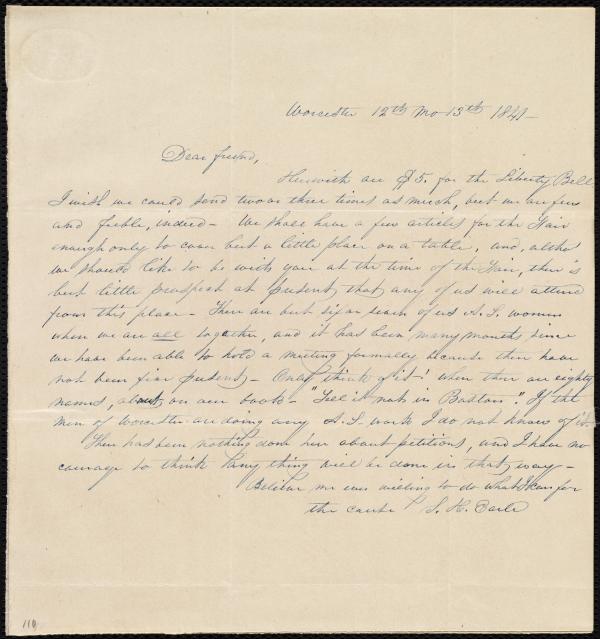 Worcester 12th Mo 13th 1841-
Dear friend,
Herewith are $5. for the Liberty Bell
I wish we could send two or three times as much, but we are few
and feeble, indeed - We shall have a few articles for the Fair
enough only to cover but a little place on a table, and, altho
we should like to be with you at the time of the Fair, there is
but little prospect at present, that any of us will attend
from this place - There are but six or seven of us A. S. women
when we are all together, and it has been many months since
we have been able to hold a meeting formally because there have
not been five present - Only think of it! when there are eighty
names, about on our book - "Tell it not in Boston." If the
men of Worcester are doing any A. S. work I do not know of it.
There has been nothing done here about petitions, and I have no
courage to think any thing will be done in that way -
Believe me ever willing to do what I can for
the cause S. H. Earle
119